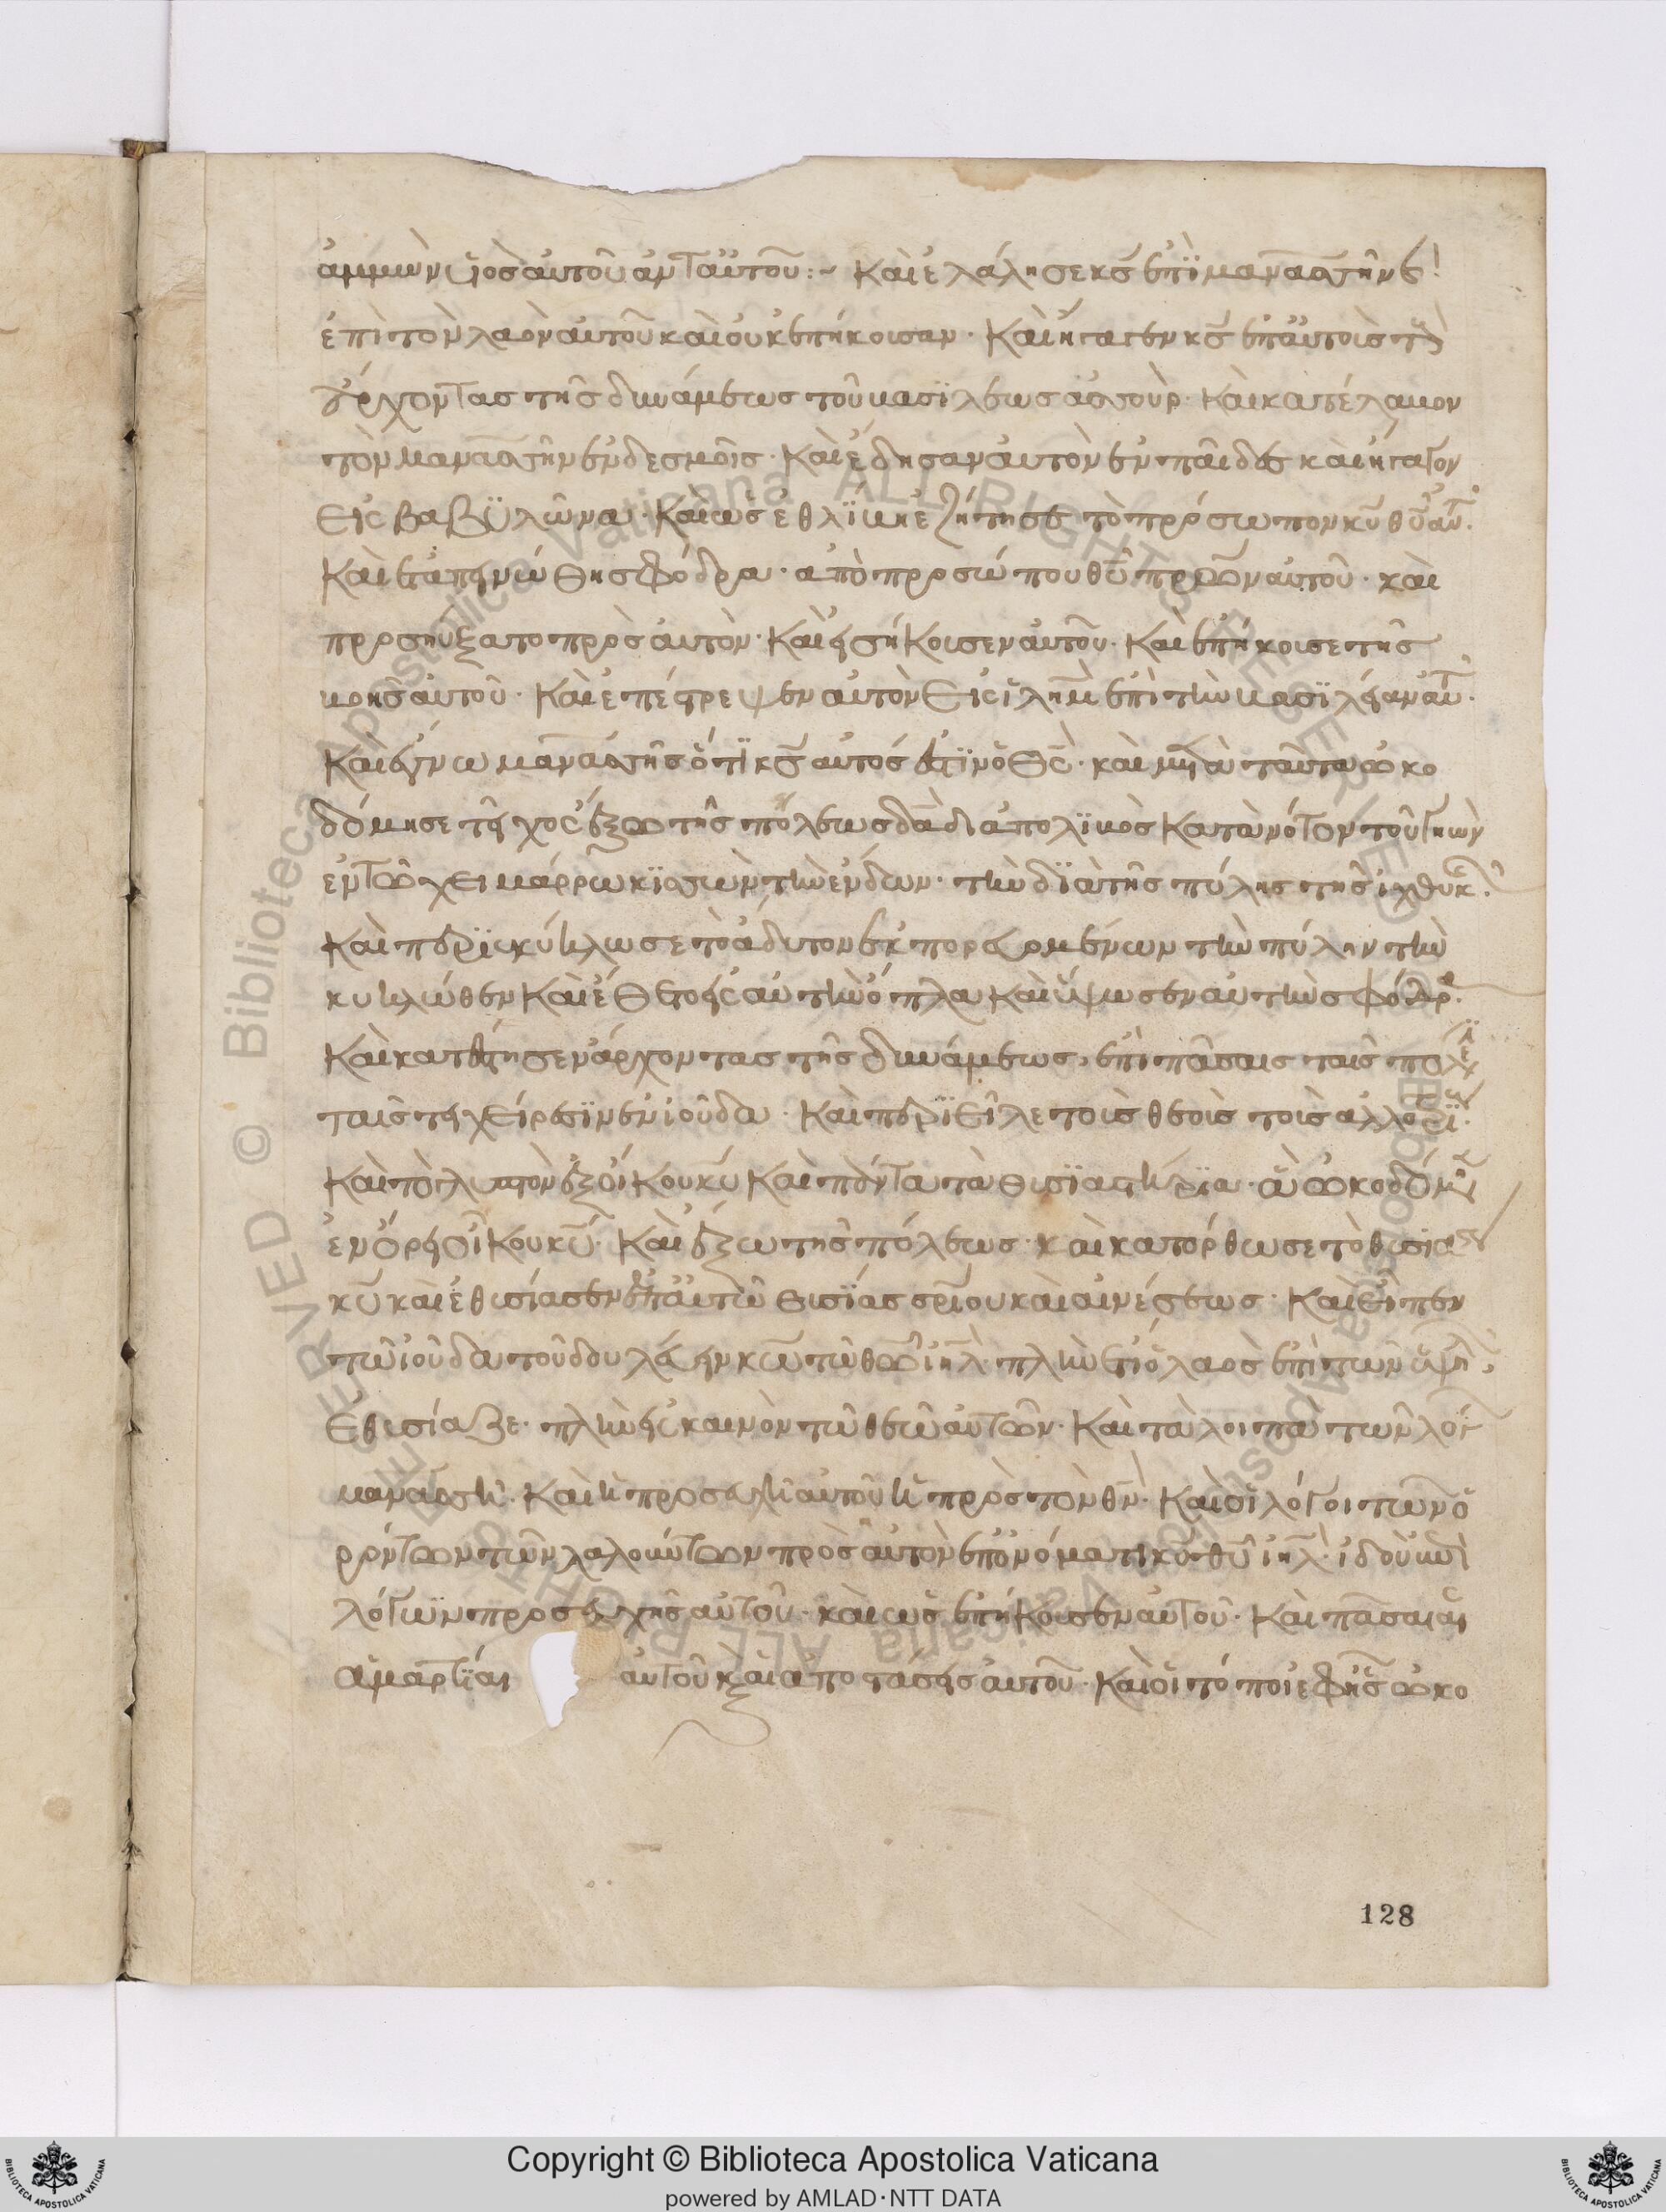 ἀμμὼν ὑιὸσ αὐτοῦ ἀντ' αὐτοῦ:~ Καὶ ἐλάλησε κσ ἐπῒ μανασσῆν ἐ
ἐπὶ τὸν λαὸν αὐτοῦ καὶ οὐκ ἐπήκουσαν· Καὶ ἤγαγεν κσ ἐπ' αὐτοὺσ τοὺσ
ἄρχοντασ τῆσ δυνάμεωσ τοῦ βασϊλέωσ ἀσσοὺρ· Καὶ κατέλαβον
τὸν μανασσῆν ἐν δεσμοῖσ· Καὶ ἔδησαν αὐτὸν ἐν παίδεσ καὶ ἤγαγον
Εἰσ βαβϋλῶνα· Καὶ ὡσ ἐθλΐβη ἐζήτησε τὸ πρόσωπον κυ θυ αὐτ·
Καὶ ἐταπεινώθη σφόδρα· ἀπὸ προσώπου θυ πρων αὐτοῦ· καὶ
προσηύξατο πρὸσ αὐτὸν· Καὶ εἰσήκουσεν αὐτοῦ· Καὶ ἐπήκουσε τῆσ
βοῆσ αὐτοῦ· Καὶ ἐπέστρεψεν αὐτὸν Εἰσ ἰλημ ἐπὶ τὴν βασϊλείαν αὐτ·
Καὶ ἔγνω μανασσῆσ ὅτϊ κσ αὐτόσ ἐστϊν ὁ θσ· καὶ μετὰ ταῦτα ὠκο
δόμησε τεῖχοσ ἔξω τῆσ πόλεωσ δαδ ἀπὸ λϊβὸσ Κατὰ νότον τοῦ γηὼν
ἐν τῶ χειμάρρω κϊ τὴν ἔνδον· τὴν δϊὰ τῆσ πύλησ τῆσ ἰχθυκ·
Καὶ περϊεκύκλωσε τὸ ἄδυτον ἐκπορευομένων τὴν πύλην τὴν
κυκλώθεν Καὶ ἔθετο εἰσ αὐτὴν ὅπλα Καὶ ὕψωσεν αὐτὴν σφόδρ·
Καὶ κατέστησεν ἄρχοντασ τῆσ δυνάμεωσ, ἐπὶ πάσαισ ταῖσ πόλε
ταῖσ τειχήρεσϊν ἐν ἰούδα· Καὶ περϊεῖλε τοὺσ θεοὺσ τοὺσ ἀλλοτρϊ·
Καὶ τὸ γλυπτὸν ἐξ οἴκου κυ Καὶ πάντα τὰ θυσϊαστήρϊα· ἃ ὠκοδόμη
ἐν ὄρει οἴκου κυ· Καὶ ἔξω τῆσ πόλεωσ· καὶ κατόρθωσε τὸ θυσια
κυ καὶ ἐθυσίασεν ἐπ' αὐτῶ θυσΐασ σρίου καὶ αἰνέσεωσ· Καὶ Εἶπεν
τῶ ἰούδα τοῦ δουλεύειν κω τῶ θω ἰηλ· πλὴν ἔτι ὁ λαὸσ ἐπὶ τῶν ὑψη·
Ἐθυσίαζε· πλὴν κενὸν τῶ θεῶ αὐτῶν· Καὶ τὰ λοιπὰ τῶν λόγ
μανασσῆ· Καὶ ἡ προσευχὴ αὐτοῦ ἡ πρὸσ τὸν θν· Καὶ οἱ λόγοι τῶν ὁ
ρώντων τῶν λαλούντων πρὸσ αὐτὸν ἐπ' ὀνόματι κυ θυ ἰηλ· ἰδοὺ ἐπὶ
λόγων προσευχῆσ αὐτοῦ· καὶ ὡσ ἐπήκουσεν αὐτοῦ· Καὶ πᾶσαι αἱ
ἁμαρτίαι αὐτοῦ καὶ αἱ ἀποστάσεισ αὐτοῦ· Καὶ οἱ τόποι ἐφ' οἷσ ὠκο
128